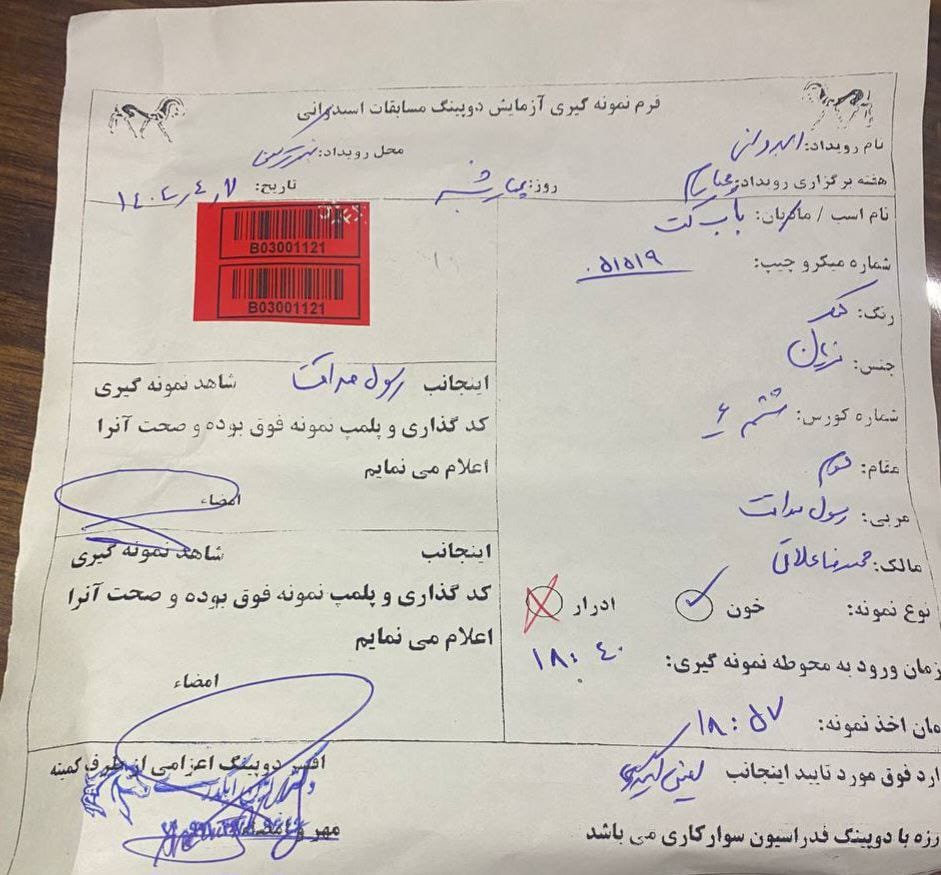 فرم نمونه گیری آزمایش دوپینگ مسابقات اسبدوانی
نام رویداد: اسبدوانی
محل رویداد:
هفته برگزاری رویداد: چهارم
روز: چهارشنبه
تاریخ: ۱۴۰۲٫۴٫۷
نام اسب / مادیان: باب کت
شماره میکرو چیپ: ۰۵۱۵۱۹
رنگ: کهر
جنس: نریان
شماره کورس: ششم ۶
مقام: دوم
مربی: رسول صداقت
مالک: حمیدرضا علائی
نوع نمونه: خون ادرار
زمان ورود به محوطه نمونه گیری: ۱۸:۴۰
مان اخذ نمونه: ۱۸:۵۷
B03001121
B03001121
اینجانب رسول صداقت شاهد نمونه گیری
کد گذاری و پلمپ نمونه فوق بوده و صحت آنرا
اعلام می نمایم
امضاء
اینجانب شاهد نمونه گیری
کد گذاری و پلمپ نمونه فوق بوده و صحت آنرا
اعلام می نمایم
امضاء
ارد فوق مورد تایید اینجانب
افسر دوپینگ اعزامی از طرف کمیته
رزه با دوپینگ فدراسیون سوارکاری می باشد
مهر و امضاء